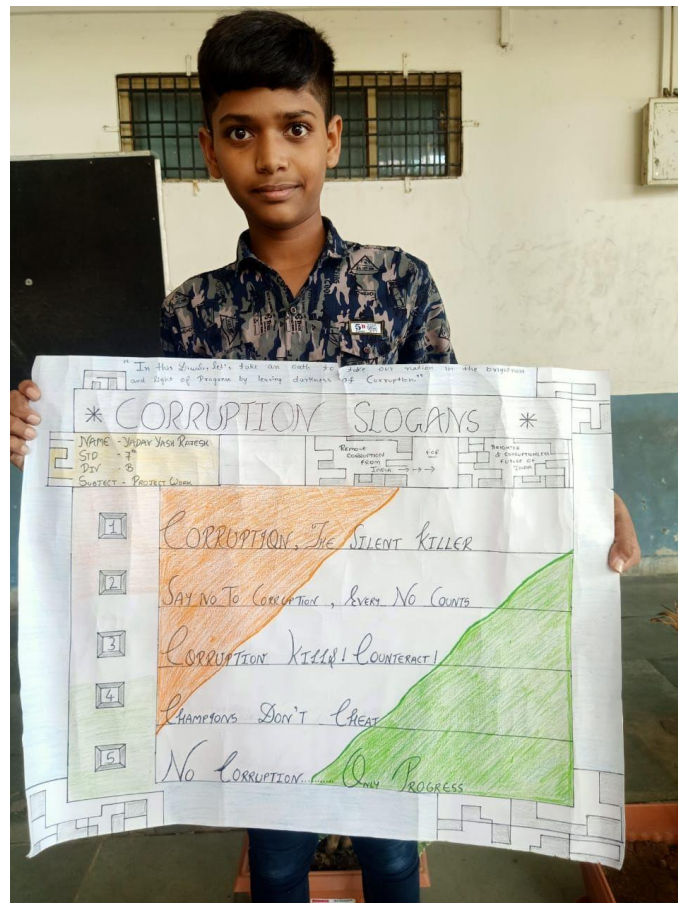 "In this Diwali, let's take an oath to take our nation in the brightness
and light of Progress by leaving darkness of Corruption."
* CORRUPTION SLOGANS *
NAME - YADAV YASH RAJESH
STD - 7th
DIV - B
SUBJECT - PROJECT WORK
REMOVE
CORRUPTION
FROM
INDIA → → →
FOR
BRIGHTER
& CORRUPTIONLESS
FUTURE OF
INDIA
1 CORRUPTION, THE SILENT KILLER
2 SAY NO TO CORRUPTION, EVERY NO COUNTS
3 CORRUPTION KILLS! COUNTERACT!
4 CHAMPIONS DON'T CHEAT
5 NO CORRUPTION......... ONLY PROGRESS